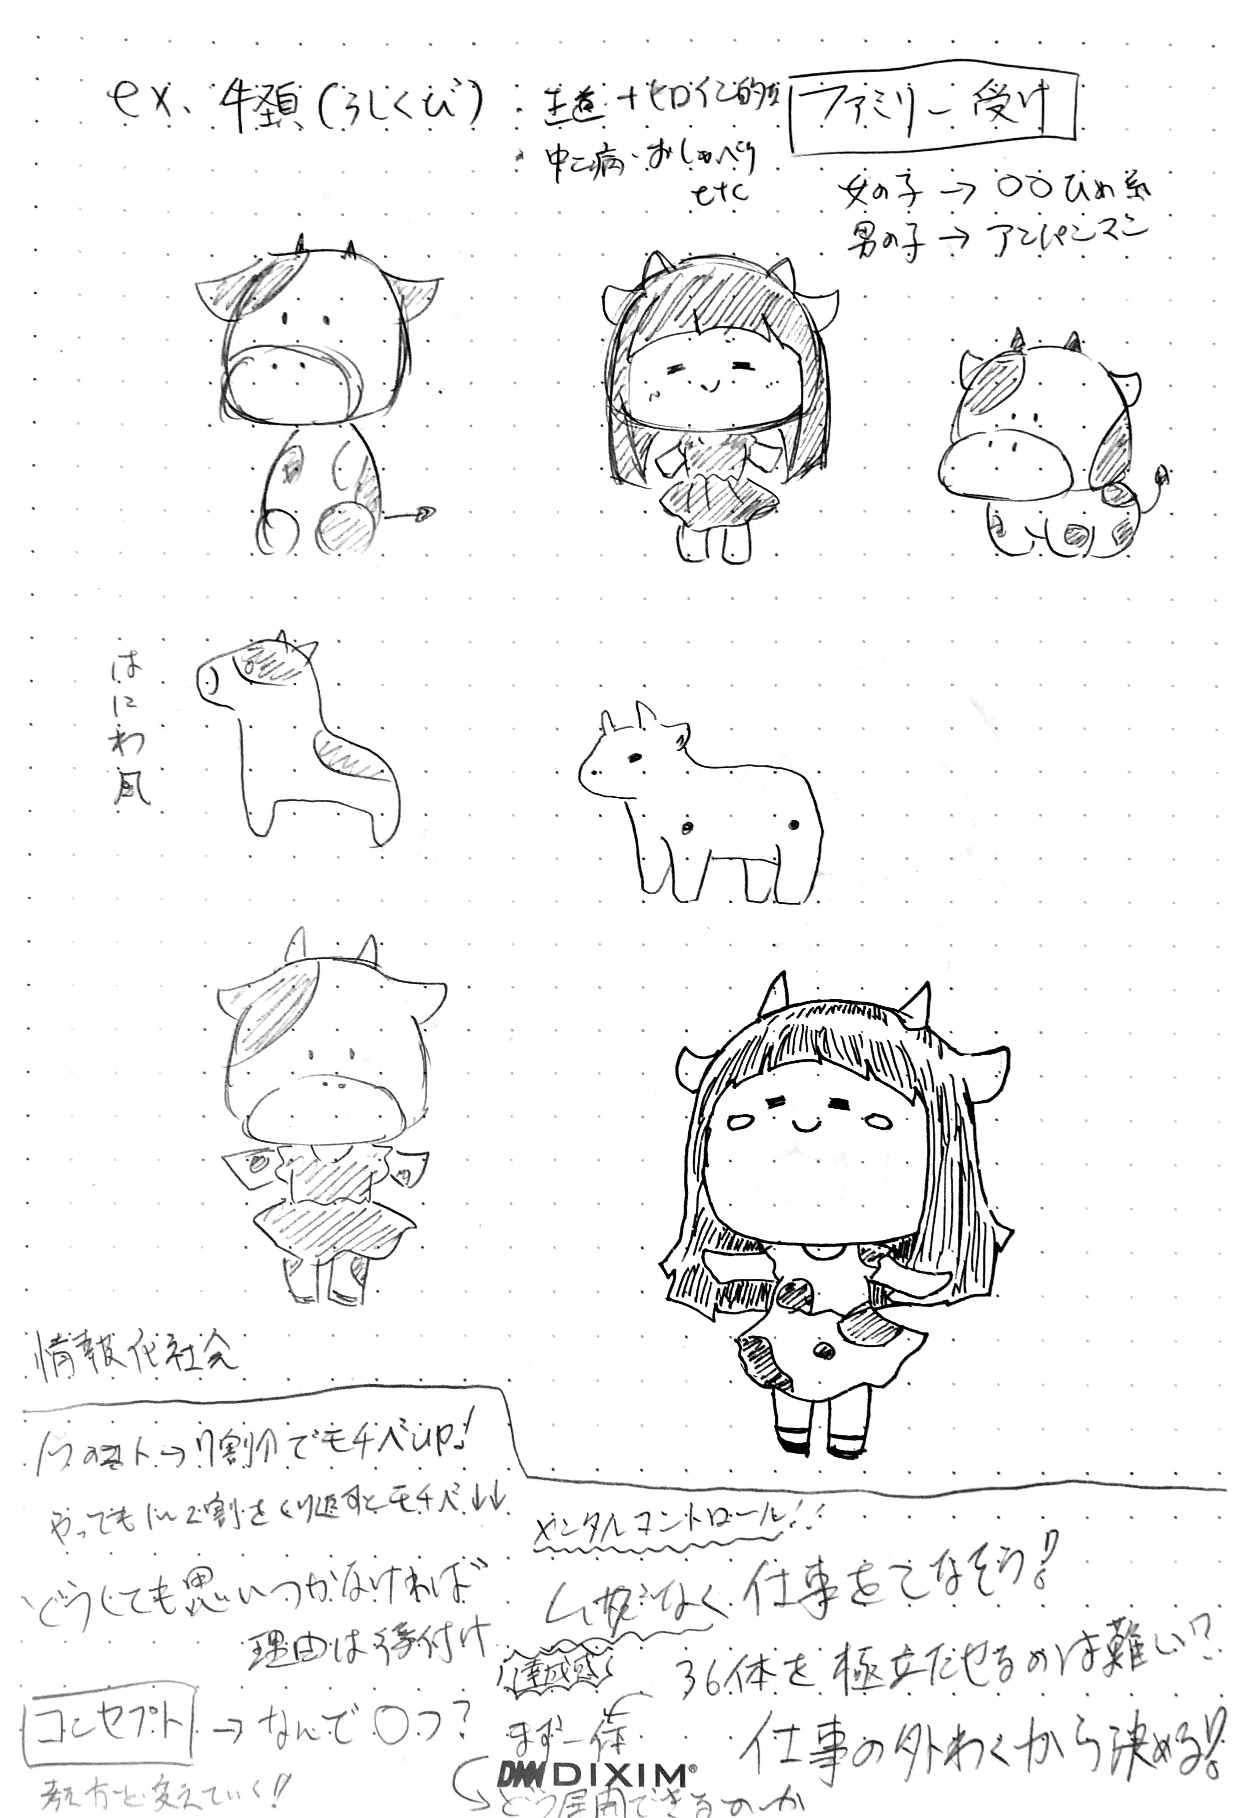 ex. 牛頚(うしくび)
・王道+ヒロイン的な
・中二病・おしゃべり
etc
ファミリー受け
女の子→○○ひめ系
男の子→アンパンマン
はにわ風
情報化社会
→7割介でモチベup!
やっても 2割をくり返すとモチベ↓↓
どうしても思いつかなければ
理由は後付け
コンセプト→なんで○つ?
考え方を変えていく!!
メンタルコントロール!!
ムダなく仕事をこなそう!
達成感
36体を極立たせるのは難しい?
まず一体
仕事の外わくから決める!!
DMM DIXIM®
どう展開できるのか